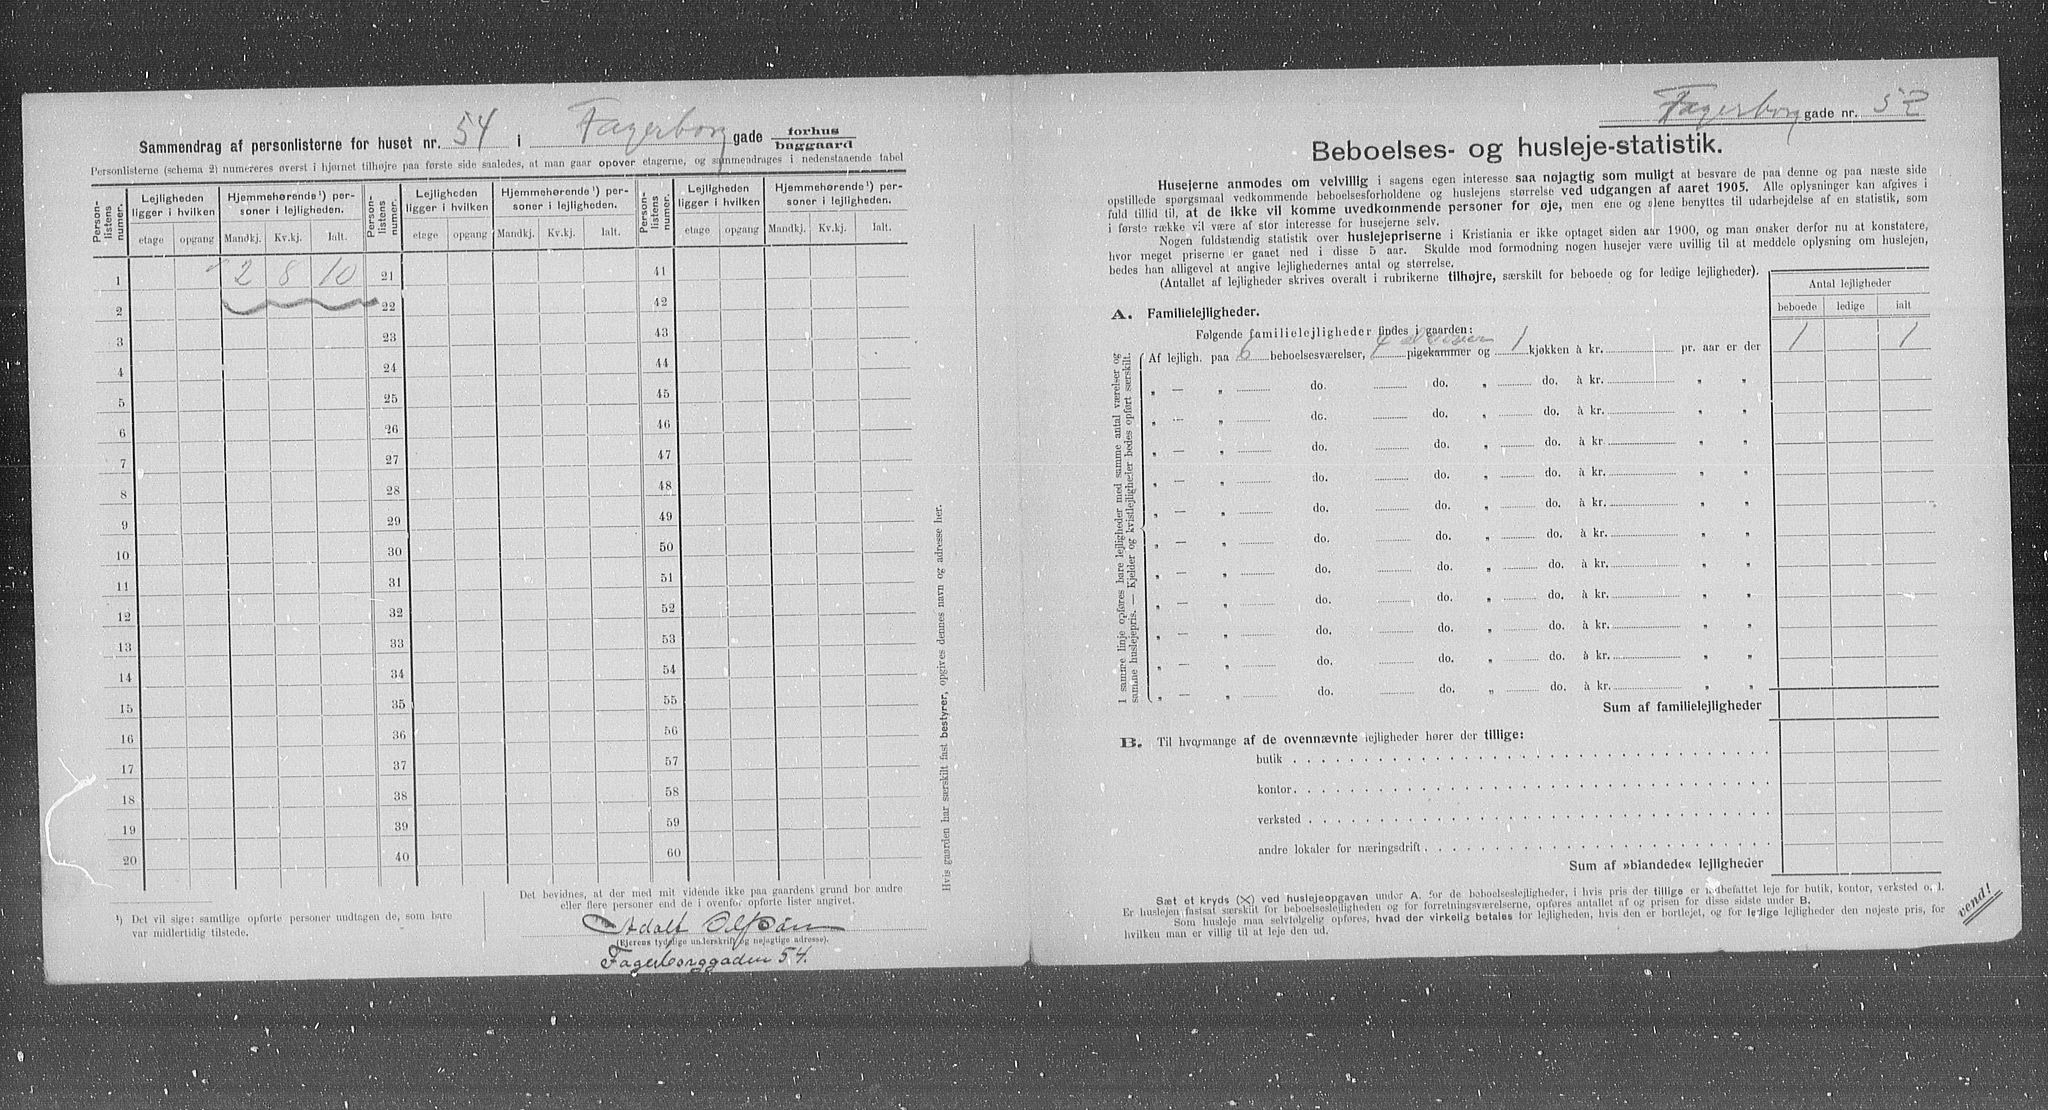 Sammendrag af personlisterne for huset nr. 54 i Fagerborg gade forhus baggaard
Personlisterne (schema 2) numereres øverst i hjørnet tilhøjre paa første side saaledes, at man gaar opover etagerne, og sammendrages i nedenstaaende tabel
Person-listens numer. Lejligheden ligger i hvilken Hjemmehørende ¹) personer i lejligheden. Person-listens numer. Lejligheden ligger i hvilken Hjemmehørende ¹) personer i lejligheden. Person-listens numer. Lejligheden ligger i hvilken Hjemmehørende ¹) personer i lejligheden.
etage opgang Mandkj. Kv.kj. Ialt. etage opgang Mandkj. Kv.kj. Ialt. etage opgang Mandkj. Kv.kj. Ialt.
1 2 8 10 21 41
2 22 42
3 23 43
4 24 44
5 25 45
6 26 46
7 27 47
8 28 48
9 29 49
10 30 50
11 31 51
12 32 52
13 33 53
14 34 54
15 35 55
16 36 56
17 37 57
18 38 58
19 39 59
20 40 60
¹) Det vil sige: samtlige opførte personer undtagen de, som bare
var midlertidig tilstede.
Det bevidnes, at der med mit vidende ikke paa gaardens grund bor andre
eller flere personer end de i ovenfor opførte lister angivet.
Adolf
(Ejerens tydelige underskrift og nøjagtige adresse).
Fagerborggaden 54.
Hvis gaarden har særskilt fast bestyrer, opgives dennes navn og adresse her.
Fagerborg gade nr. 52
Beboelses- og husleje-statistik.
Husejerne anmodes om velvillig i sagens egen interesse saa nøjagtig som muligt at besvare de paa denne og paa næste side
opstillede spørgsmaal vedkommende beboelsesforholdene og huslejens størrelse ved udgangen af aaret 1905. Alle oplysninger kan afgives i
fuld tillid til, at de ikke vil komme uvedkommende personer for øje, men ene og alene benyttes til udarbejdelse af en statistik, som
i første række vil være af stor interesse for husejerne selv.
Nogen fuldstændig statistik over huslejepriserne i Kristiania er ikke optaget siden aar 1900, og man ønsker derfor nu at konstatere,
hvor meget priserne er gaaet ned i disse 5 aar. Skulde mod formodning nogen husejer være uvillig til at meddele oplysning om huslejen,
bedes han alligevel at angive lejlighedernes antal og størrelse.
(Antallet af lejligheder skrives overalt i rubrikerne tilhøjre, særskilt for beboede og for ledige lejligheder).
Antal lejligheder
beboede ledige ialt
A. Familielejligheder.
Følgende familielejligheder findes i gaarden:
Af lejligh. paa 6 beboelsesværelser, pigekammer og 1 kjøkken à kr. pr. aar er der 1 1
„ — „ do. do. „ do. à kr. „ „
„ — „ do. do. „ do. à kr. „ „
„ — „ do. do. „ do. à kr. „ „
„ — „ do. do. „ do. à kr. „ „
„ — „ do. do. „ do. à kr. „ „
„ — „ do. do. „ do. à kr. „ „
„ — „ do. do. „ do. à kr. „ „
„ — „ do. do. „ do. à kr. „ „
„ — „ do. do. „ do. à kr. „ „
„ — „ do. do. „ do. à kr. „ „
„ — „ do. do. „ do. à kr. „ „
I samme linje opføres bare lejligheder med samme antal værelser og
samme huslejepris. — Kjelder og kvistlejligheder bedes opført særskilt.
Sum af familielejligheder
B. Til hvormange af de ovennævnte lejligheder hører der tillige:
butik
kontor
verksted
andre lokaler for næringsdrift
Sum af »blandede« lejligheder
Sæt et kryds (×) ved huslejeopgaven under A. for de beboelseslejligheder, i hvis pris der tillige er indbefattet leje for butik, kontor, verksted o. l.
Er huslejen fastsat særskilt for beboelseslejligheden og for forretningsværelserne, opføres antallet af og prisen for disse sidste under B.
Som husleje maa selvfølgelig opføres, hvad der virkelig betales for lejligheden, hvis den er bortlejet, og for ledige lejligheder den nøjeste pris, for
hvilken man er villig til at leje den ud.
vend!